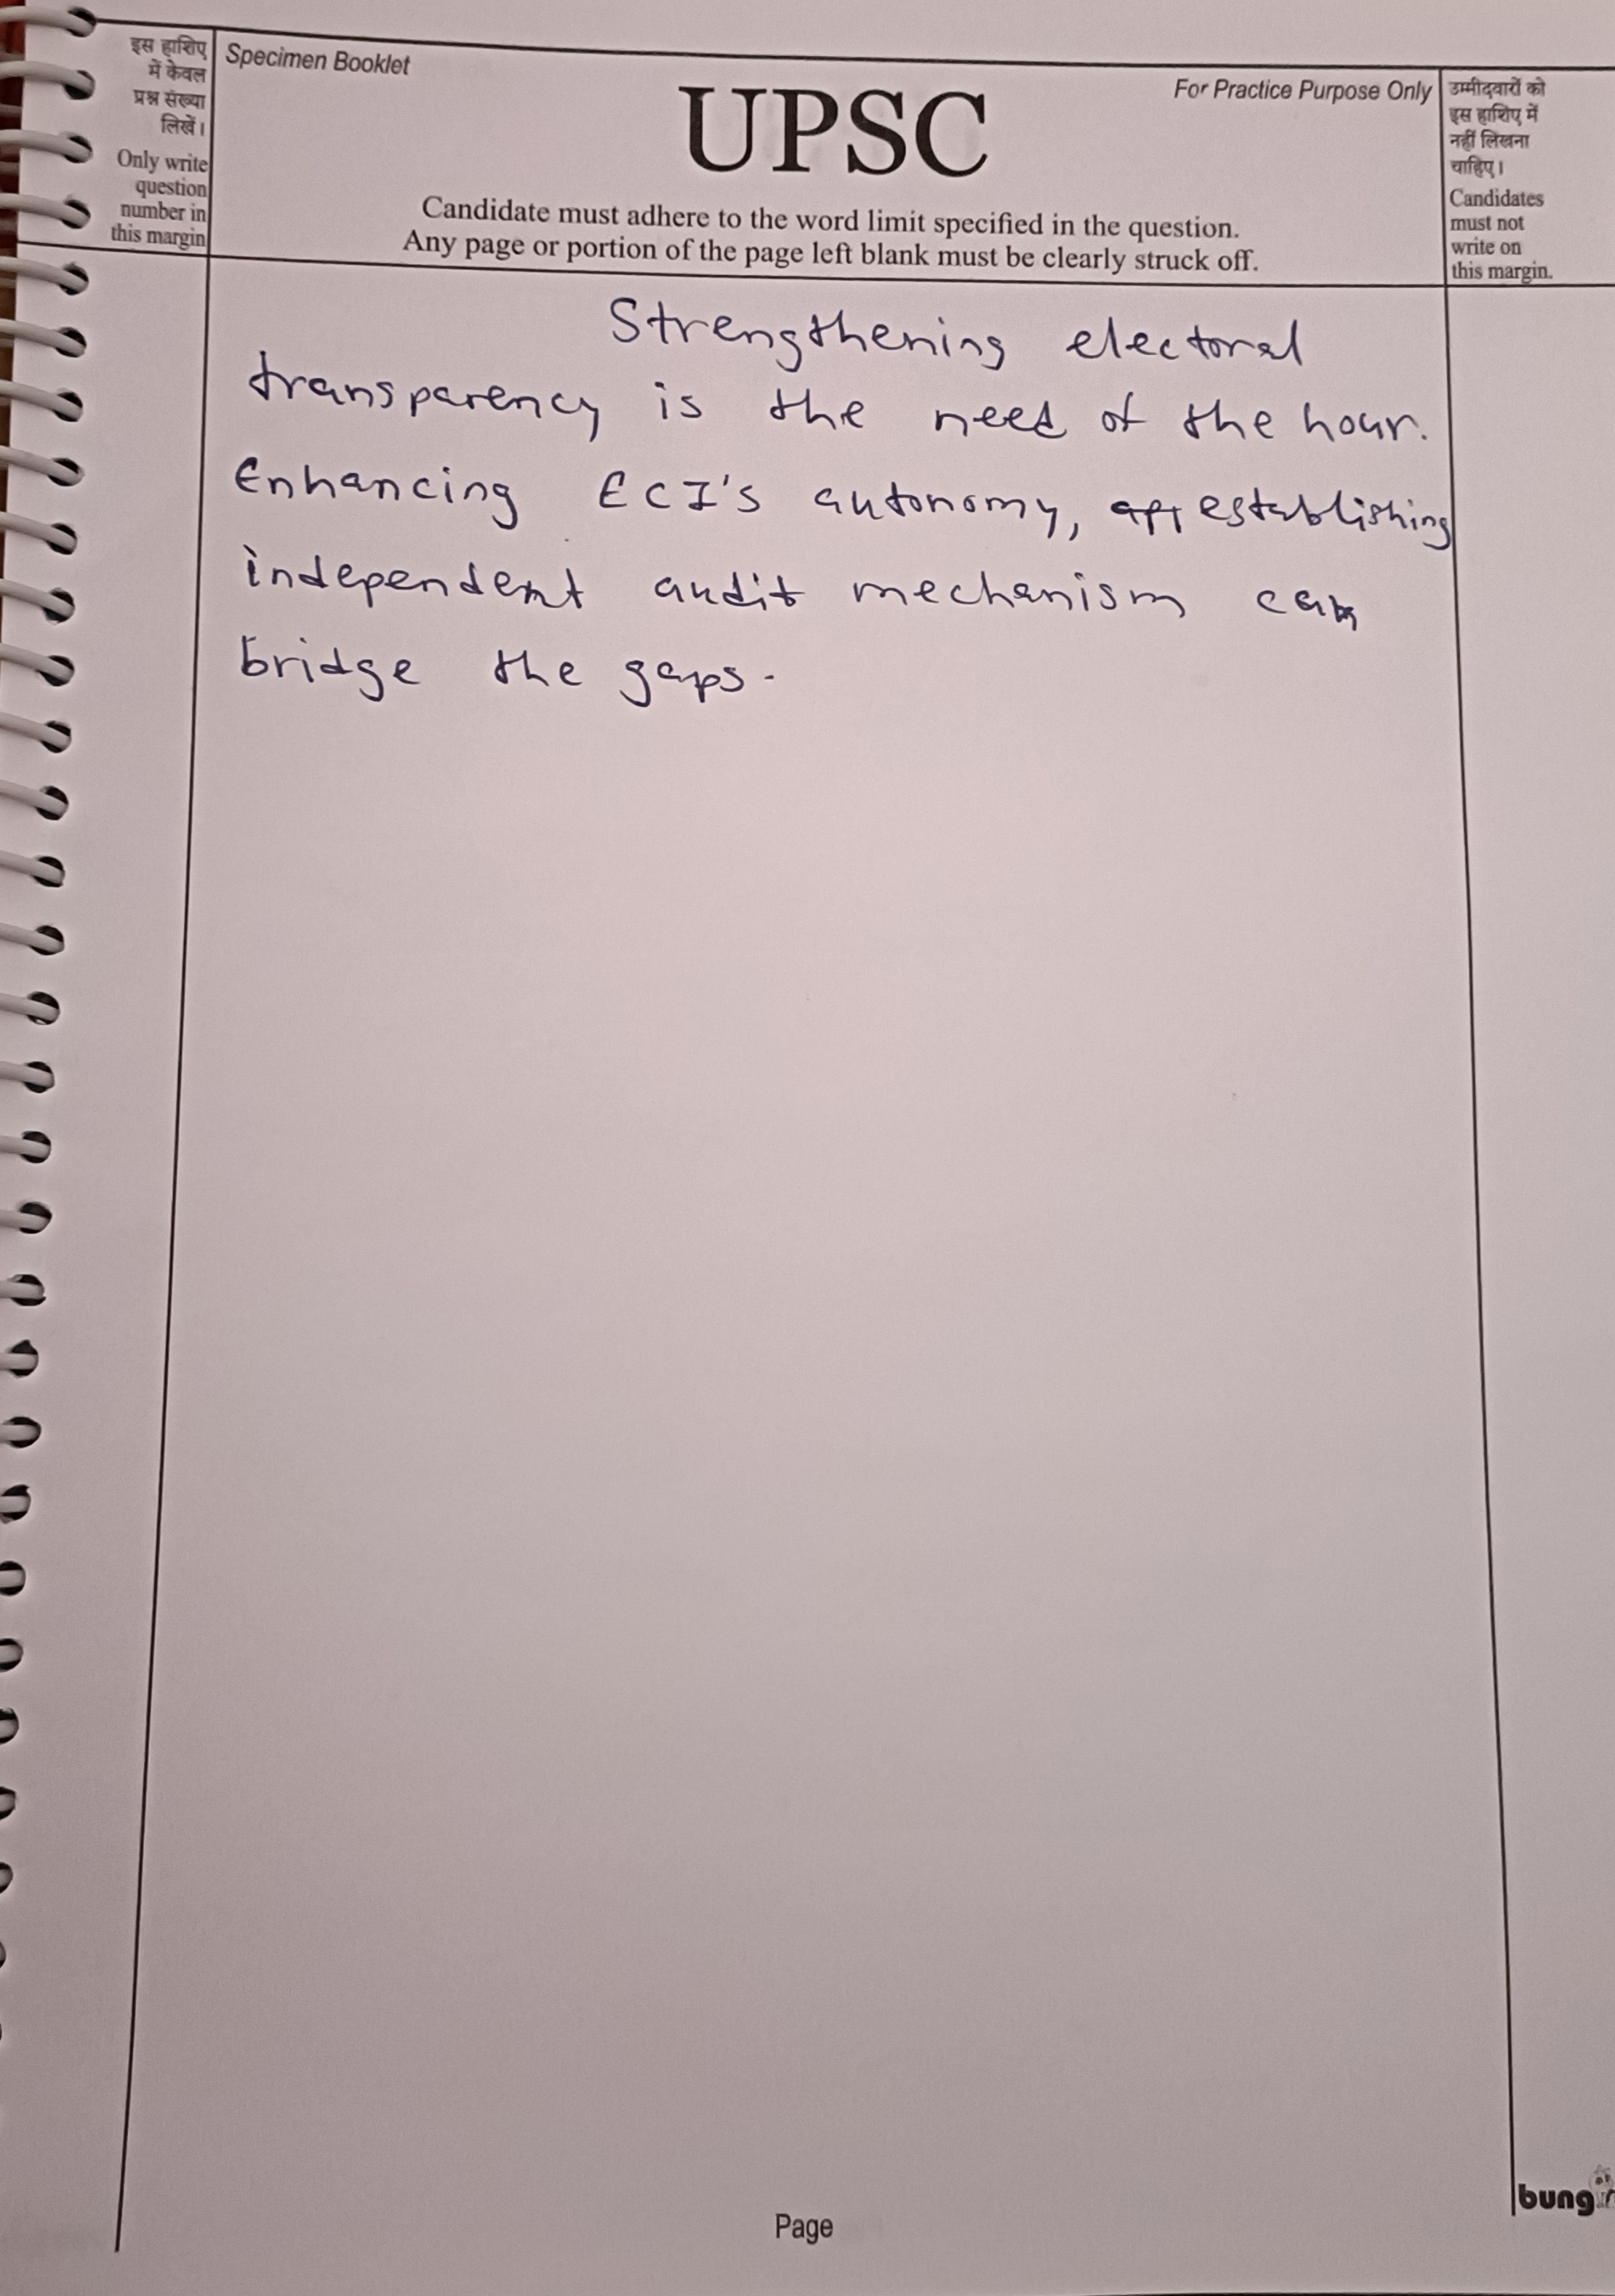 इस हाशिए
में केवल
प्रश्न संख्या
लिखें।
Only write
question
number in
this margin
Specimen Booklet
UPSC
For Practice Purpose Only
Candidate must adhere to the word limit specified in the question.
Any page or portion of the page left blank must be clearly struck off.
उम्मीदवारों को
इस हाशिए में
नहीं लिखना
चाहिए।
Candidates
must not
write on
this margin.
Strengthening electoral
transparency is the need of the hour.
Enhancing ECI's autonomy, establishing
independent audit mechanism can
bridge the gaps.
Page